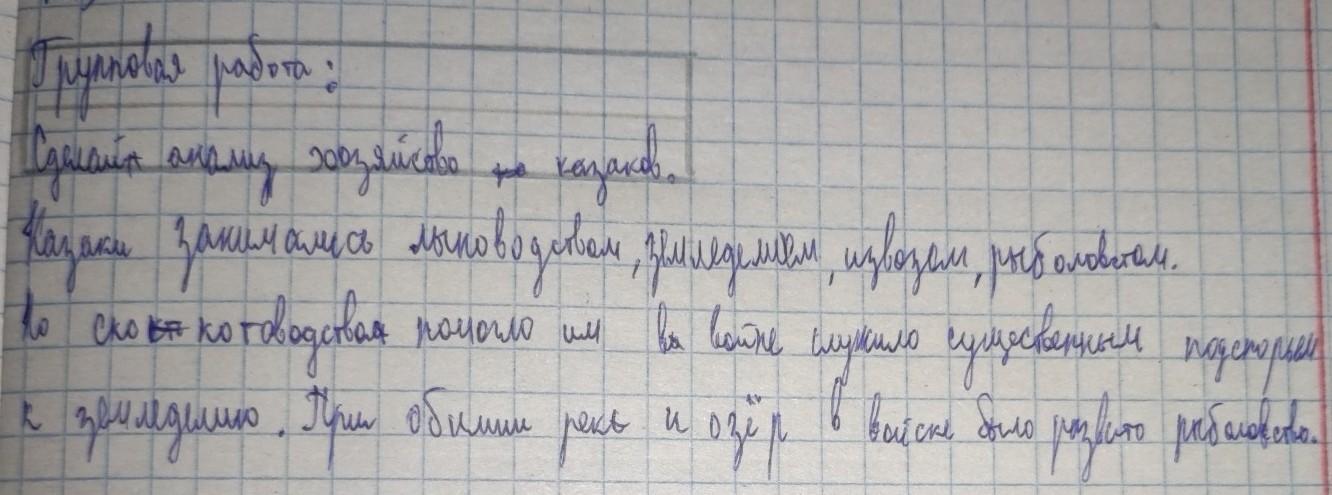 Групповая работа:
Сделайт анализ хозяйство казаков.
Казаки занимались льноводством, земледелием, извозам, рыболовстом.
Но скокотоводства помогло им в войне служило существенным подспорьем
к земледелию. При обилии рекь и озёр в войске было развито рыболовство.